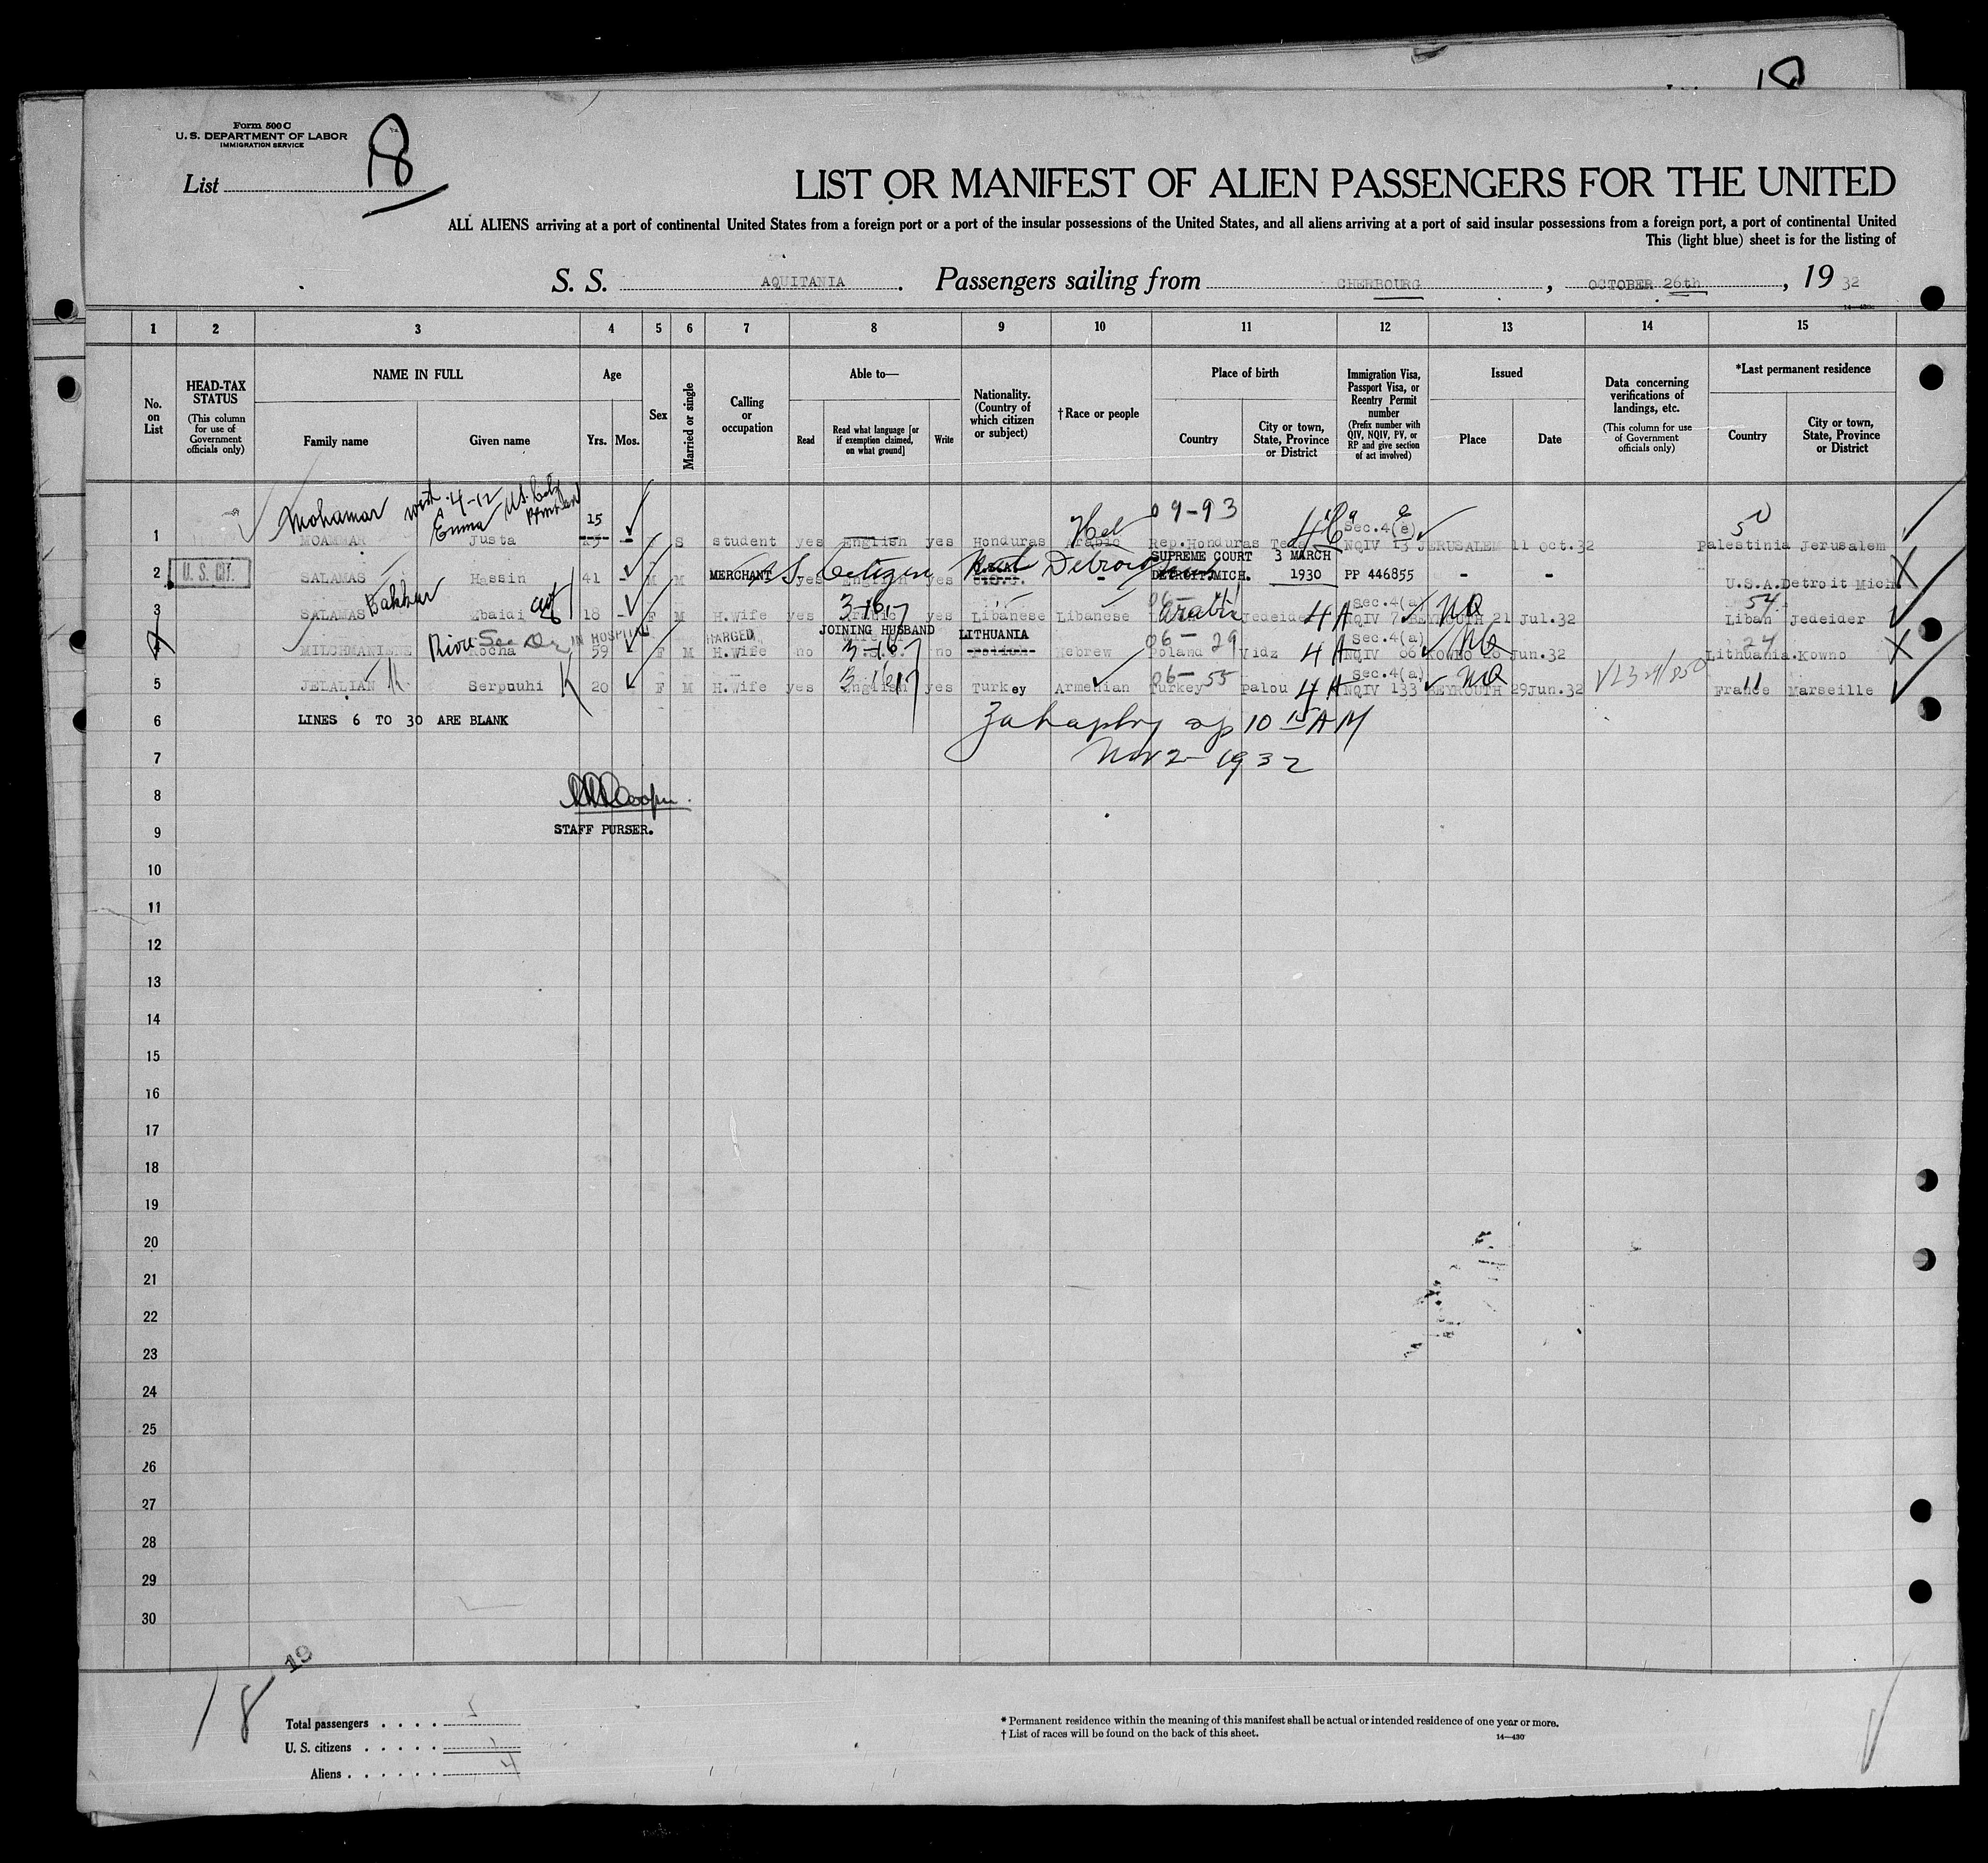 18
Form 500 C
U. S. DEPARTMENT OF LABOR
IMMIGRATION SERVICE
List 18
LIST OR MANIFEST OF ALIEN PASSENGERS FOR THE UNITED
ALL ALIENS arriving at a port of continental United States from a foreign port or a port of the insular possessions of the United States, and all aliens arriving at a port of said insular possessions from a foreign port, a port of continental United
This (light blue) sheet is for the listing of
S. S. AQUITANIA. Passengers sailing from CHERBOURG, OCTOBER 26th, 19 32
14—430
1 2 3 4 5 6 7 8 9 10 11 12 13 14 15
No. on List
HEAD-TAX STATUS
(This column for use of Government officials only)
NAME IN FULL
Family name Given name
Age
Yrs. Mos.
Sex
Married or single
Calling or occupation
Able to—
Read
Read what language [or if exemption claimed, on what ground]
Write
Nationality. (Country of which citizen or subject)
† Race or people
Place of birth
Country
City or town, State, Province or District
Immigration Visa, Passport Visa, or Reentry Permit number
(Prefix number with QIV, NQIV, PV, or RP and give section of act involved)
Issued
Place Date
Data concerning verifications of landings, etc.
(This column for use of Government officials only)
*Last permanent residence
Country
City or town, State, Province or District
Mohamar Emma 15 09-93 Sec.4(e)
1 MOAMMAR Justa S student yes English yes Honduras Arabic Rep.Honduras Tela NQIV 13 JERUSALEM 11 Oct.32 Palestinia Jerusalem
SUPREME COURT 3 MARCH
2 U. S. CIT. SALAMAS Hassin 41 - M M MERCHANT yes English yes U.S. Citizen Detroit DETROIT MICH. 1930 PP 446855 - - U.S.A. Detroit Mich.
Bakkar 3-16 Arabic 06- Sec.4(a) 54
3 SALAMAS Ebaidi 18 - F M H.Wife yes Arabic yes Libanese Libanese Jedeider 4 A NQIV 7 BEYROUTH 21 Jul.32 NQ Liban Jedeider
IN HOSPITAL JOINING HUSBAND LITHUANIA 06-29 Sec.4(a) 24
4 MILCHMANIENE Rocha 59 F M H.Wife no 3-16 no Polish Hebrew Poland Vidz 4 A NQIV 66 KOWNO Jun.32 NQ Lithuania. Kowno
06-55 Sec.4(a) 11
5 JELALIAN Serpuuhi 20 F M H.Wife yes English yes Turkey Armenian Turkey Palou 4 A NQIV 133 BEYROUTH 29 Jun.32 NQ France Marseille
6 LINES 6 TO 30 ARE BLANK 10 15 AM
7 Nov 2 - 1932
8
9 STAFF PURSER.
10
11
12
13
14
15
16
17
18
19
20
21
22
23
24
25
26
27
28
29
30
19
18
Total passengers . . . . 5
U. S. citizens . . . . . 1
Aliens . . . . . . 4
* Permanent residence within the meaning of this manifest shall be actual or intended residence of one year or more.
† List of races will be found on the back of this sheet.
14—430